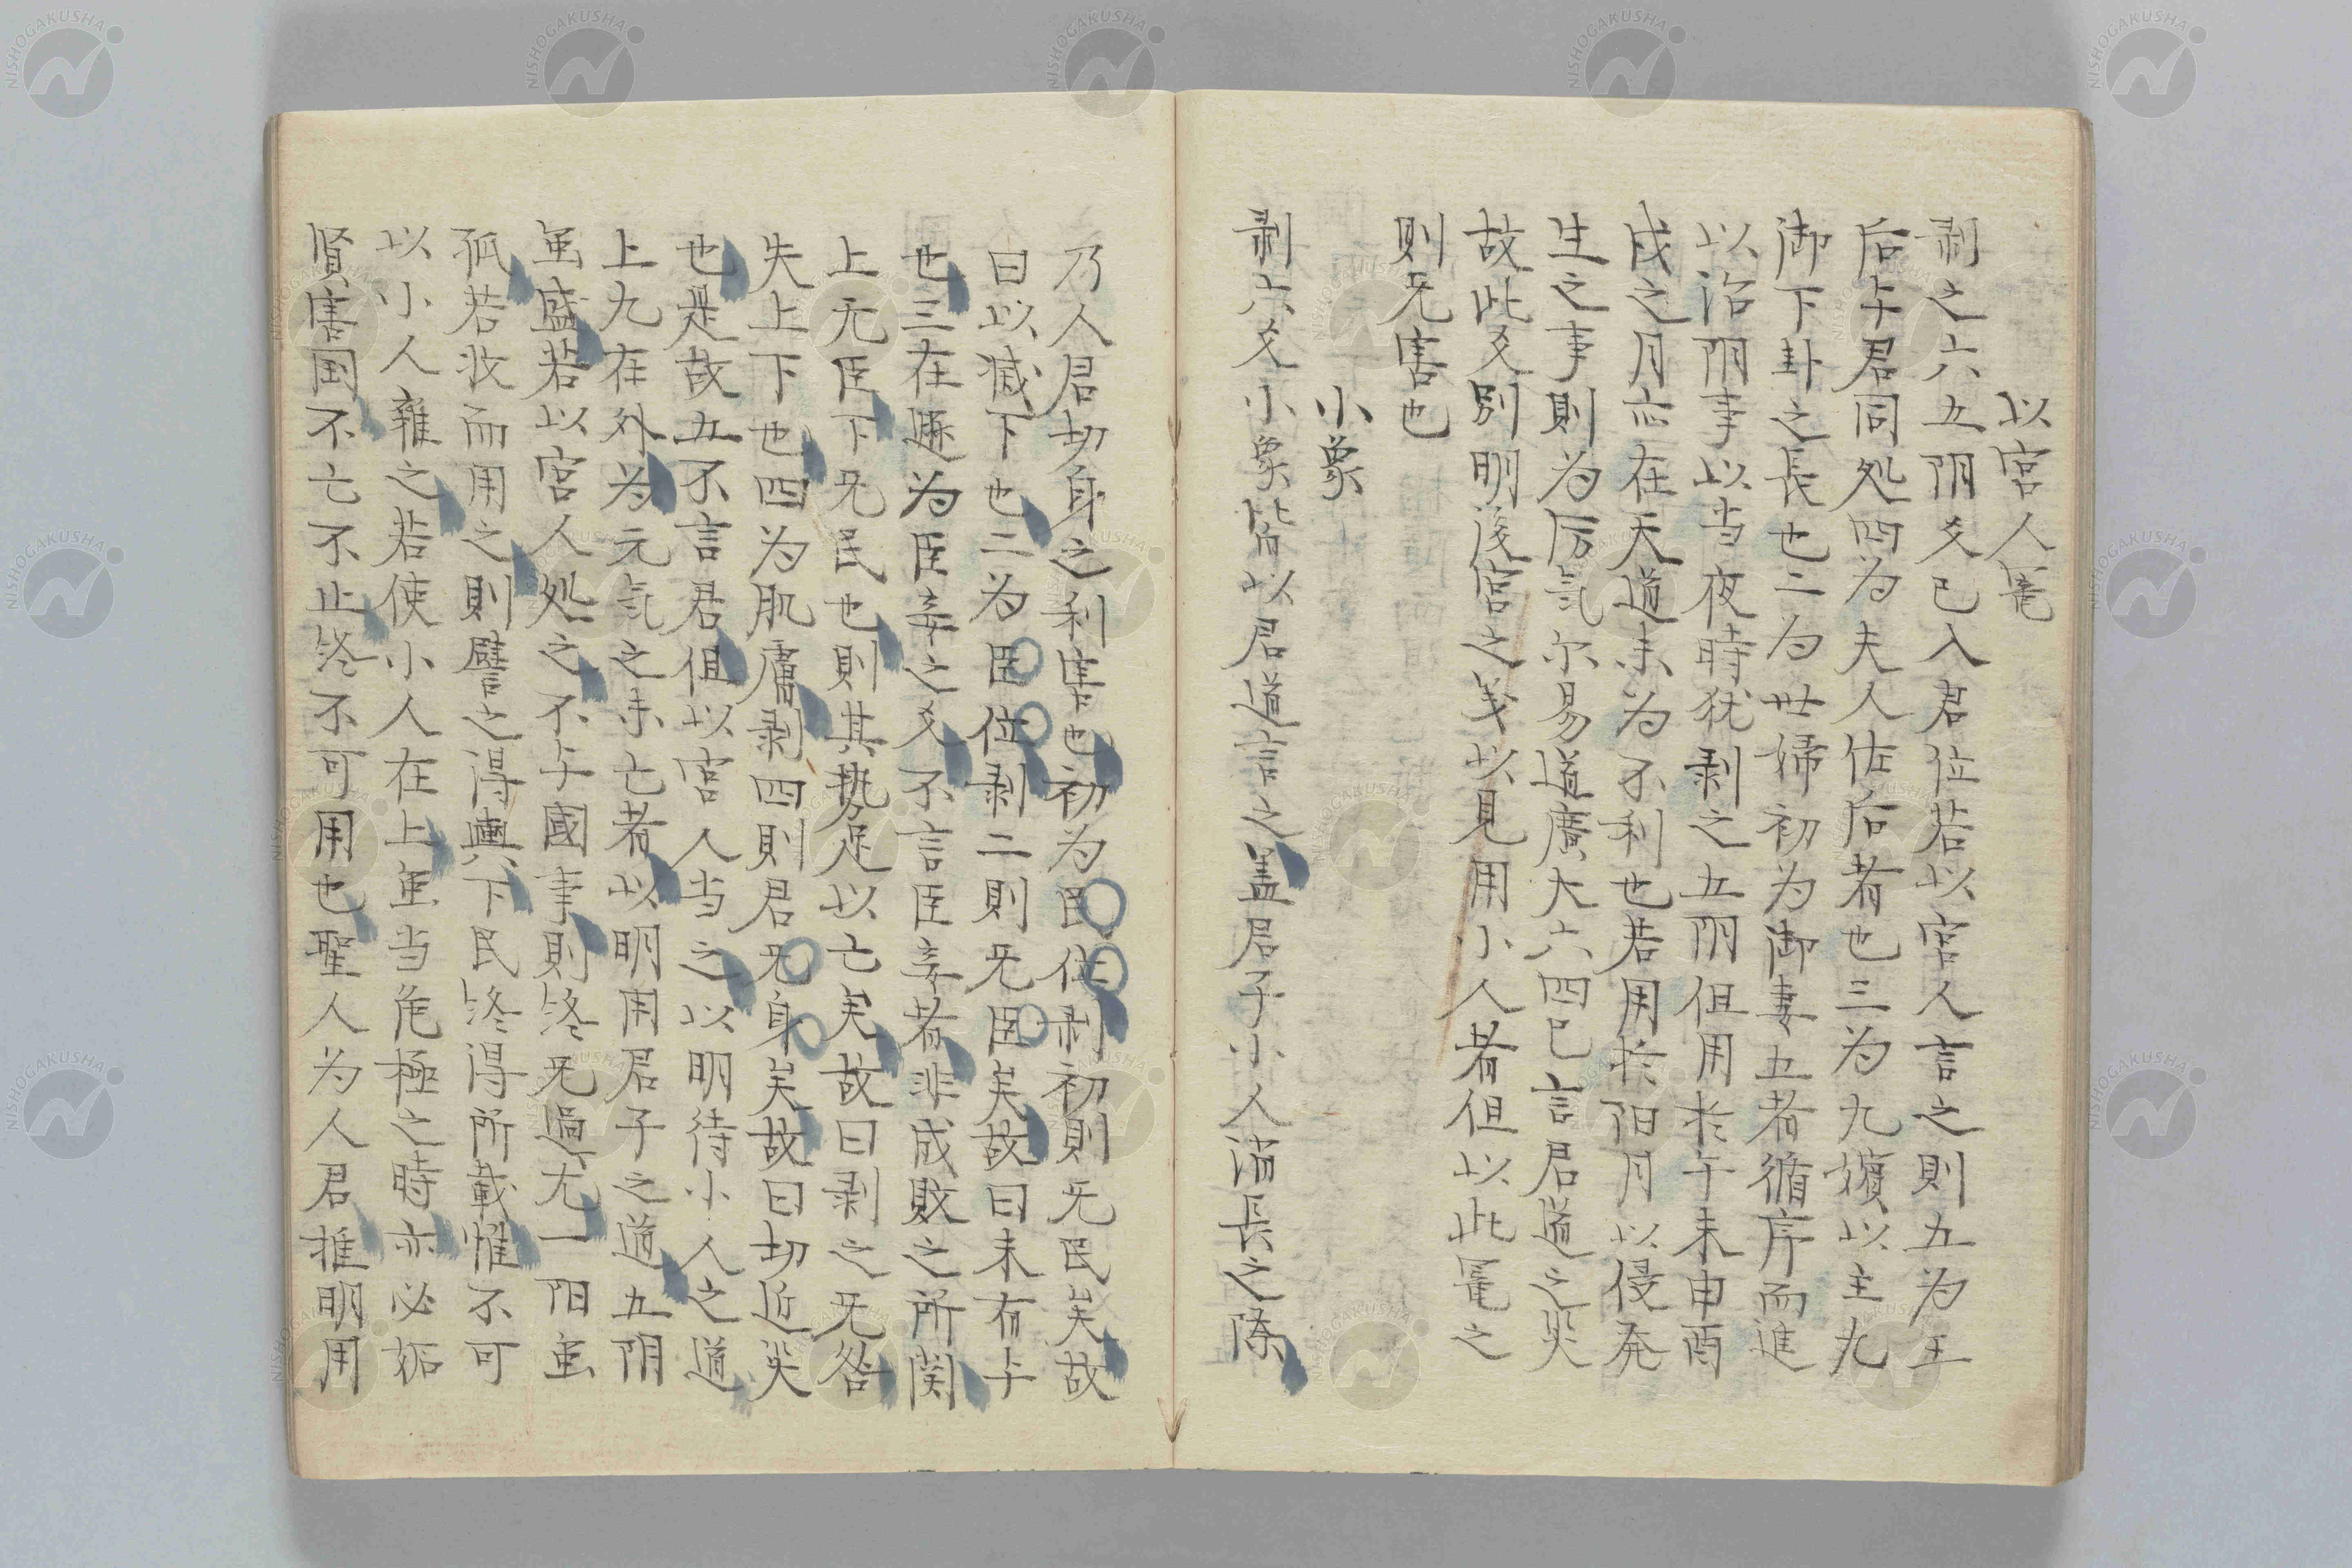 以宮人寵
剥之六五阴爻已入君位若以宮人言之則五为王
后与君同処四为夫人佐后者也三为九嬪以主九
御下卦之長也二为世婦初为御妻五者循序而進
以治阴事以当夜時犹剥之五阴但用於午未申酉
戌之月亦在天道未为不利也若用於阳月以侵発
生之事則为厉氣尔易道廣大六四已言君道之災
故此爻別明後宮之义以見用小人者但以此寵之
則无害也
小象
剥六爻小象皆以君道言之盖君子小人消長之際
乃人君切身之利害也初为民位剥初則无民矣故
曰以滅下也二为臣位剥二則无臣矣故曰未有与
也三在遯为臣妾之爻不言臣妾者非成敗之所関
上无臣下无民也則其勢足以亡矣故曰剥之无咎
失上下也四为肌膚剥四則君无身矣故曰切近災
也是故五不言君但以宮人当之以明待小人之道
上九在外为元氣之未亡者以明用君子之道五阴
虽盛若以宮人処之不与國事則終无過尤一阳虽
孤若收而用之則譬之得輿下民終得所載惟不可
以小人雍之若使小人在上虽当危極之時亦必妬
賢害国不亡不止終不可用也聖人为人君推明用
NISHOGAKUSHA